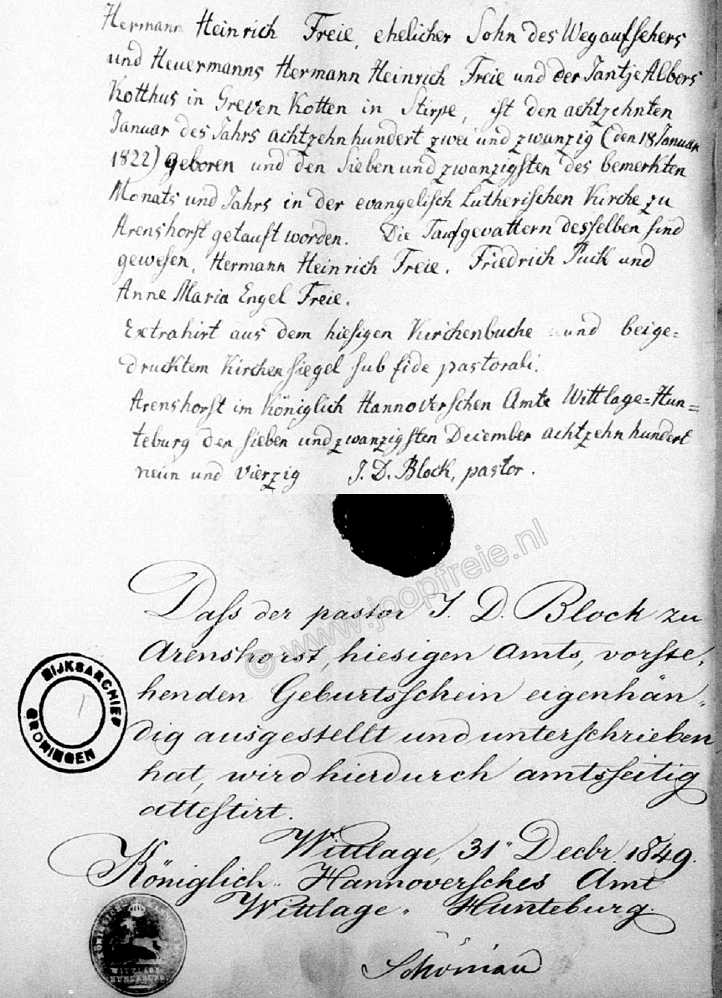 Hermann Heinrich Freie, ehelicher Sohn des Wegaufsehers
und Heuermanns Hermann Heinrich Freie und der Tantje Albers
Kotthus in Greven Kotten in Stirpe, ist den achtzehnten
Januar des Jahrs achtzehnhundert zwei und zwanzig (den 18 Januar
1822) geboren und den Sieben und zwanzigsten des bemerkten
Monats und Jahrs in der evangelisch Lutherischen Kirche zu
Arenshorst getauft worden. Die Taufgevattern desselben sind
gewesen, Hermann Heinrich Freie, Friedrich Puck und
Anne Maria Engel Freie.
Extrahirt aus dem hiesigen Kirchenbuche und beige-
drucktem Kirchensiegel sub fide pastorali.
Arenshorst im Königlich Hannoverschen Amte Wittlage=Hun=
teburg den sieben und zwanzigsten December achtzehnhundert
neun und vierzig J. D. Block, pastor.
© www.joopfreie.nl
Dass der pastor J. D. Block zu
Arenshorst, hiesigen Amts, vorste-
henden Geburtsschein eigenhän-
dig ausgestellt und unterschrieben
hat, wird hierdurch amtsseitig
attestirt.
RIJKSARCHIEF
GRONINGEN
Wittlage, 31" Decbr. 1849.
Königlich Hannoversches Amt
Wittlage Hunteburg.
WITTLAGE
HUNTEBURG